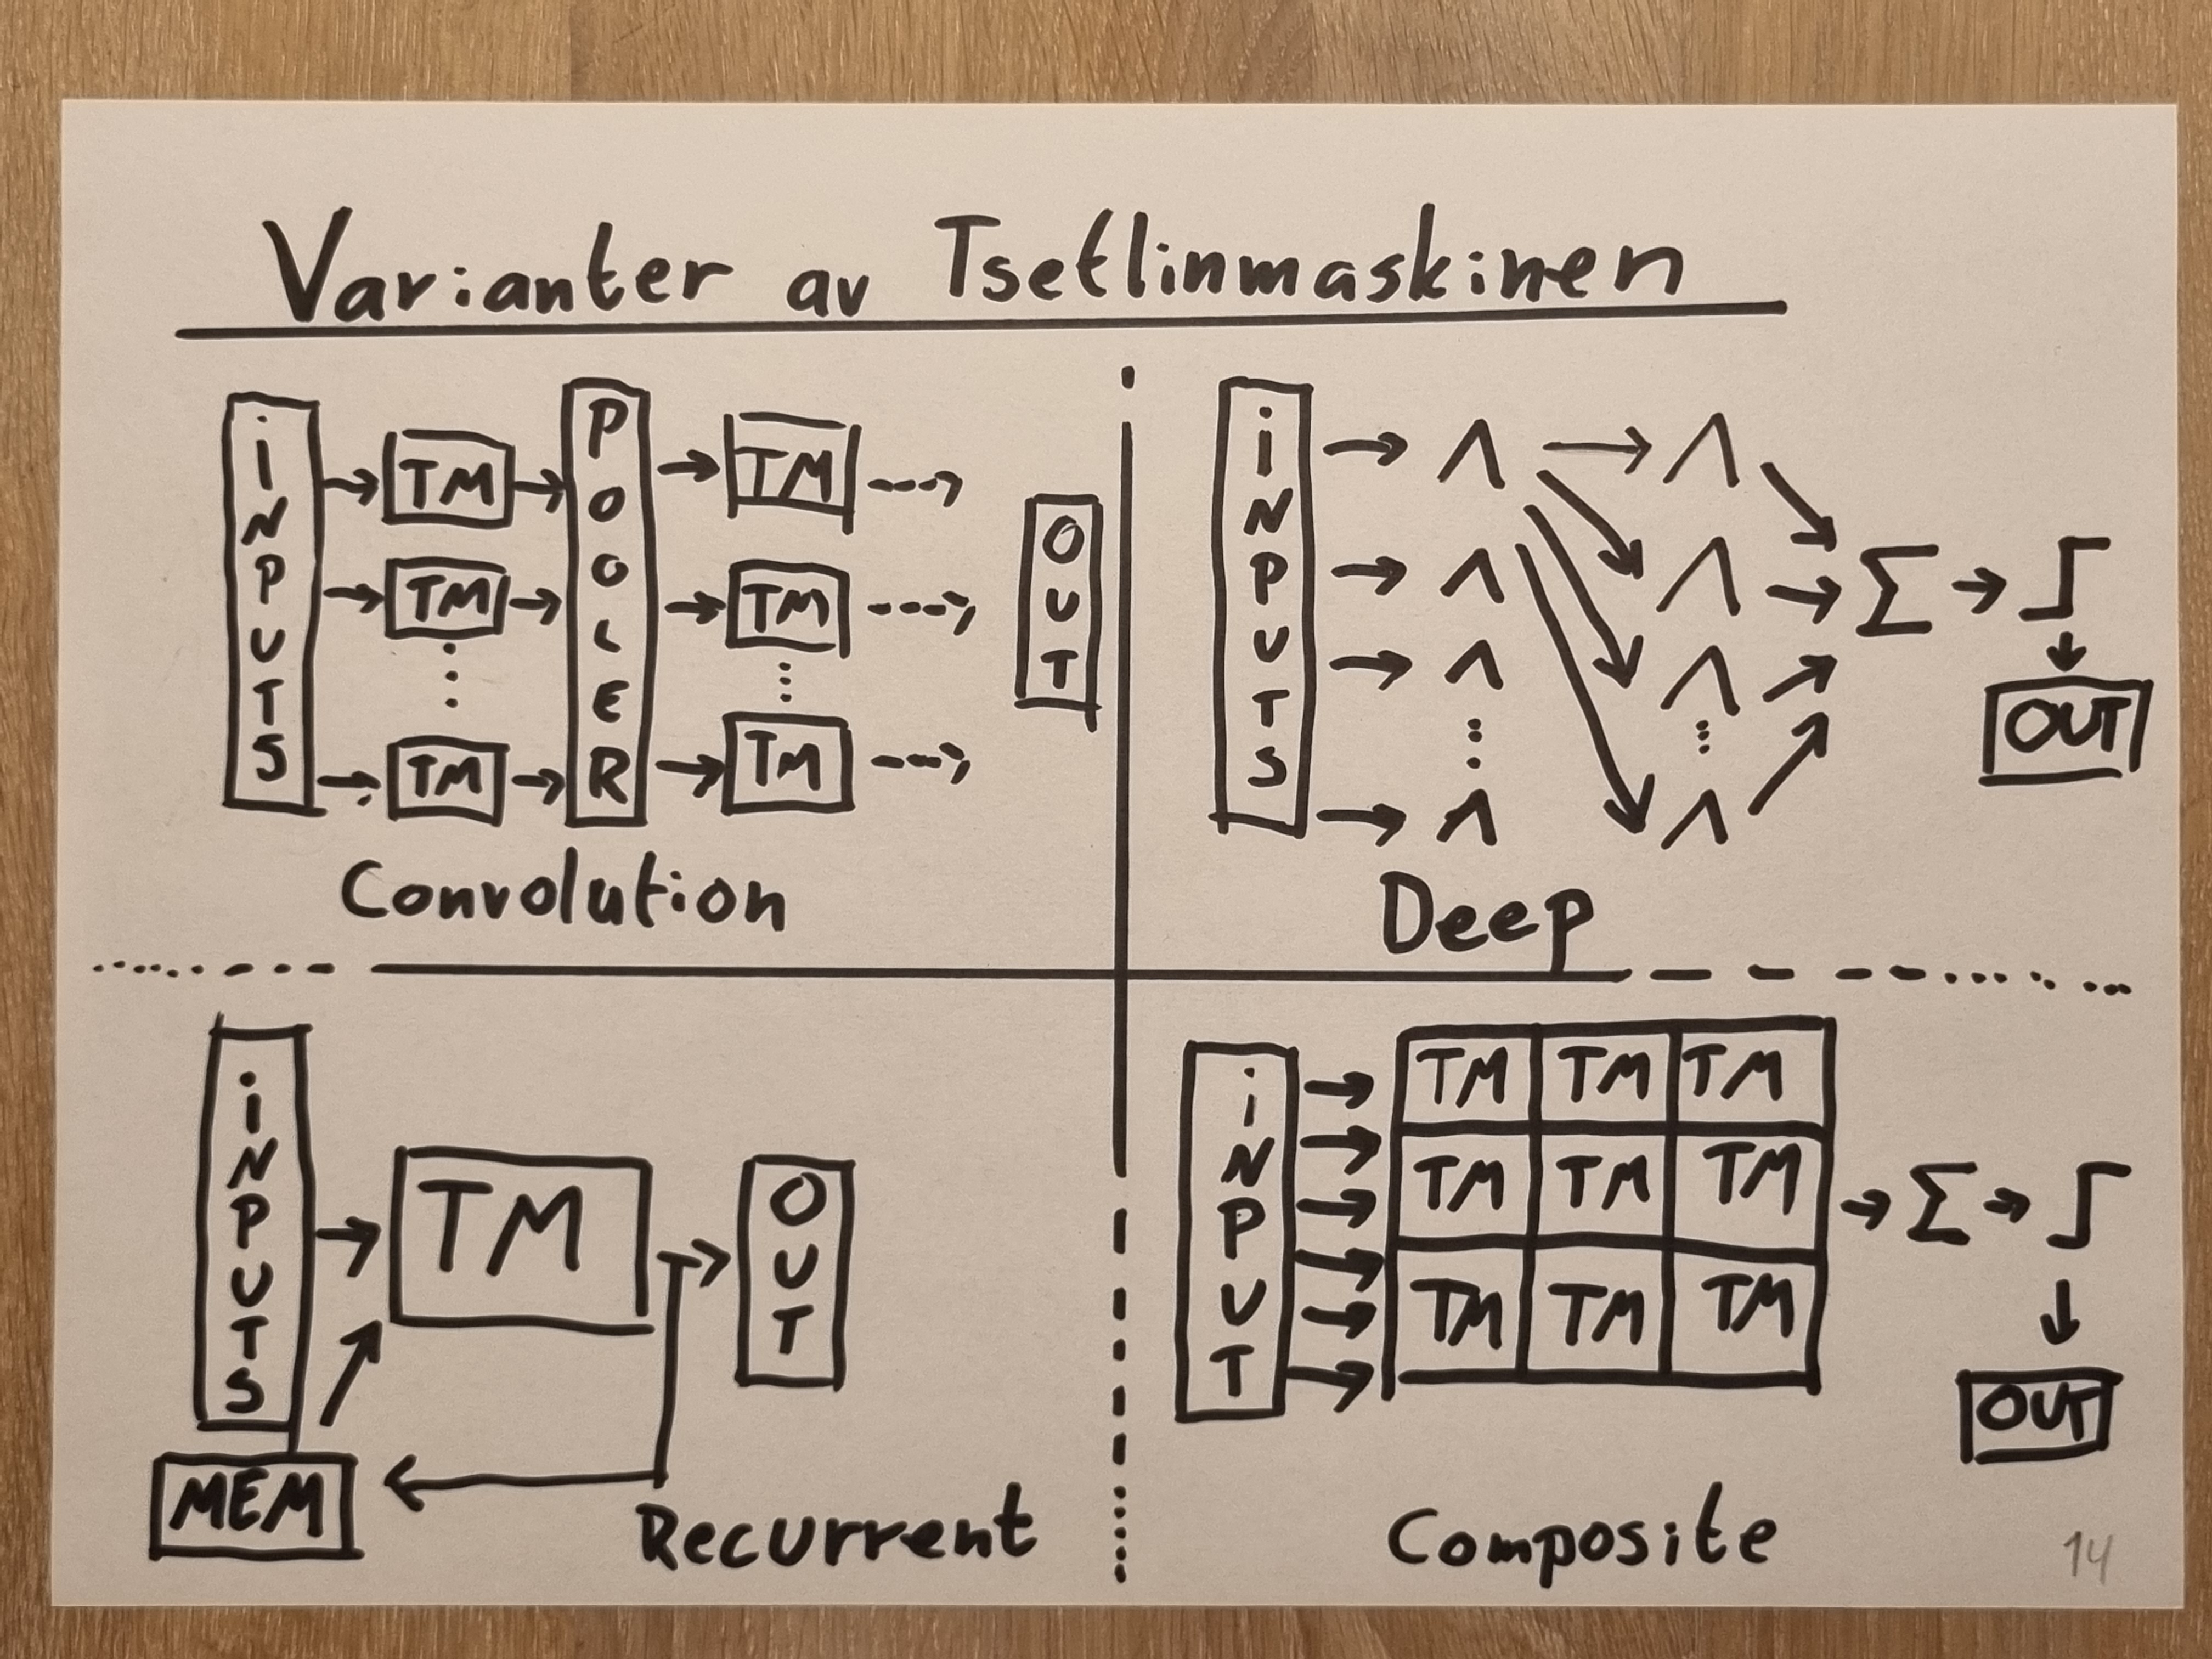 Varianter av Tsetlinmaskinen
INPUTS
TM
TM
TM
POOLER
TM
TM
TM
OUT
Convolution
INPUTS
Λ Λ
Λ Λ
Λ Λ
Λ Λ
Σ
OUT
Deep
INPUTS
MEM
TM
OUT
Recurrent
INPUT
TM TM TM
TM TM TM
TM TM TM
Σ
OUT
Composite
14